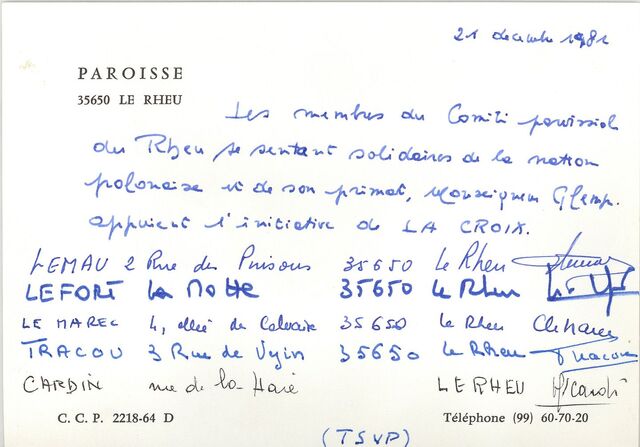 21 decembre 1981
PAROISSE
35650 LE RHEU
Les membres du Comité paroissial
du Rheu se sentant solidaires de la nation
polonaise et de son primat, Monseigneur Glemp.
appuient l'initiative de LA CROIX.
LEMAU 2 Rue des Pinsons 35650 le Rheu
LEFORT la Motte 35650 le Rheu
LE MAREC 4, allée du Calvaire 35650 le Rheu
TRACOU 3 Rue de 35650 le Rheu Tracou
CARDIN rue de la Haie LE RHEU
C. C. P. 2218-64 D Téléphone (99) 60-70-20
(TSVP)